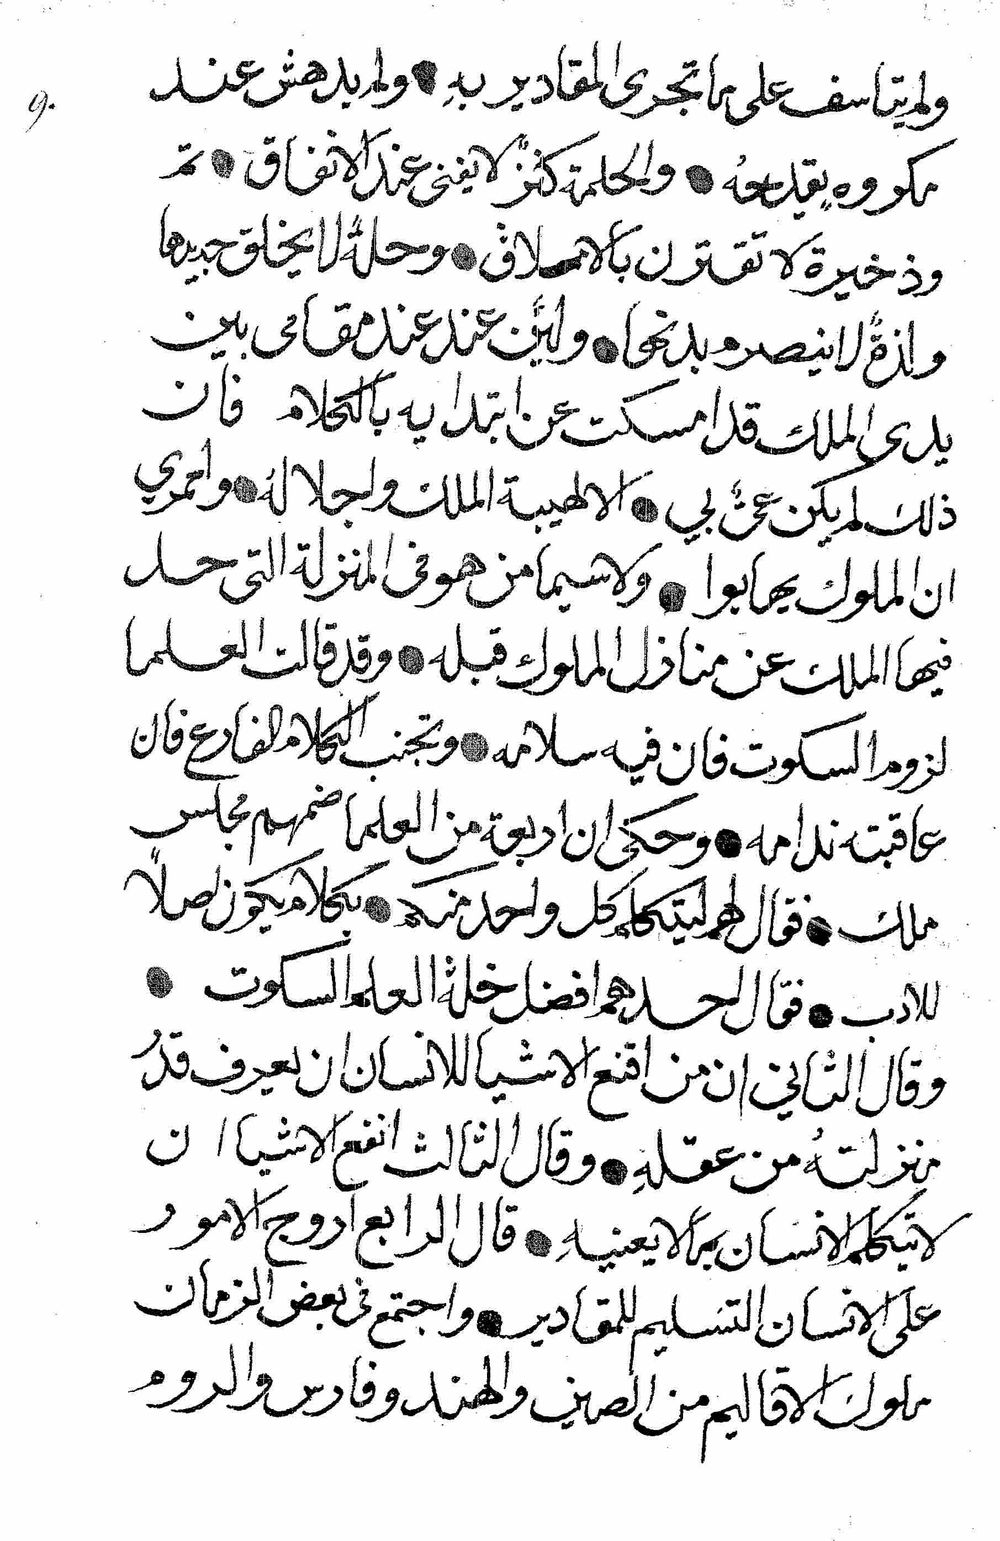 9.
ولم يتاسف على ما تجرى المقادير به ● ولم يدهش عند
مكروه يقدحه ● والحكمة كنز لا يفنى عند الانفاق ● ثم
وذخيرة لا تقترن بالاملاق ● وحلة لا يخلق جديدها
ولذة لا ينصرم بدنها ● ولين عند عند مقامى بين
يدى الملك قد امسكت عن ابتدايه بالكلام فان
ذلك لم يكن عىٌ بي ● الا لهيبة الملك واجلاله ● ولعمري
ان الملوك يهابوا ● ولا سيما من هو فى المنزلة التى حل
فيها الملك عن منازل الملوك قبله ● وقد قالت العلما
لزوم السكوت فان فيه سلامه ● وتجنب الكلام الفارغ فان
عاقبته ندامه ● وحكى ان اربعة من العلما ضمهم مجلس
ملك ● فقال لهم ليتكلم كل واحد منكم ● بكلام يكون اصلاً
للادب ● فقال احدهم افضل خلة العلم السكوت ●
وقال الثاني ان من اقنع الاشيا للانسان ان يعرف قدرُ
منزلتهُ من عقلهِ ● وقال الثالث انفع الاشيا ان
لا يتكلم الانسان بما لا يعنيهِ ● قال الرابع اروح الامور
على الانسان التسليم للمقادير ● واجتمع فى بعض الزمان
ملوك الاقاليم من الصين والهند وفارس والروم